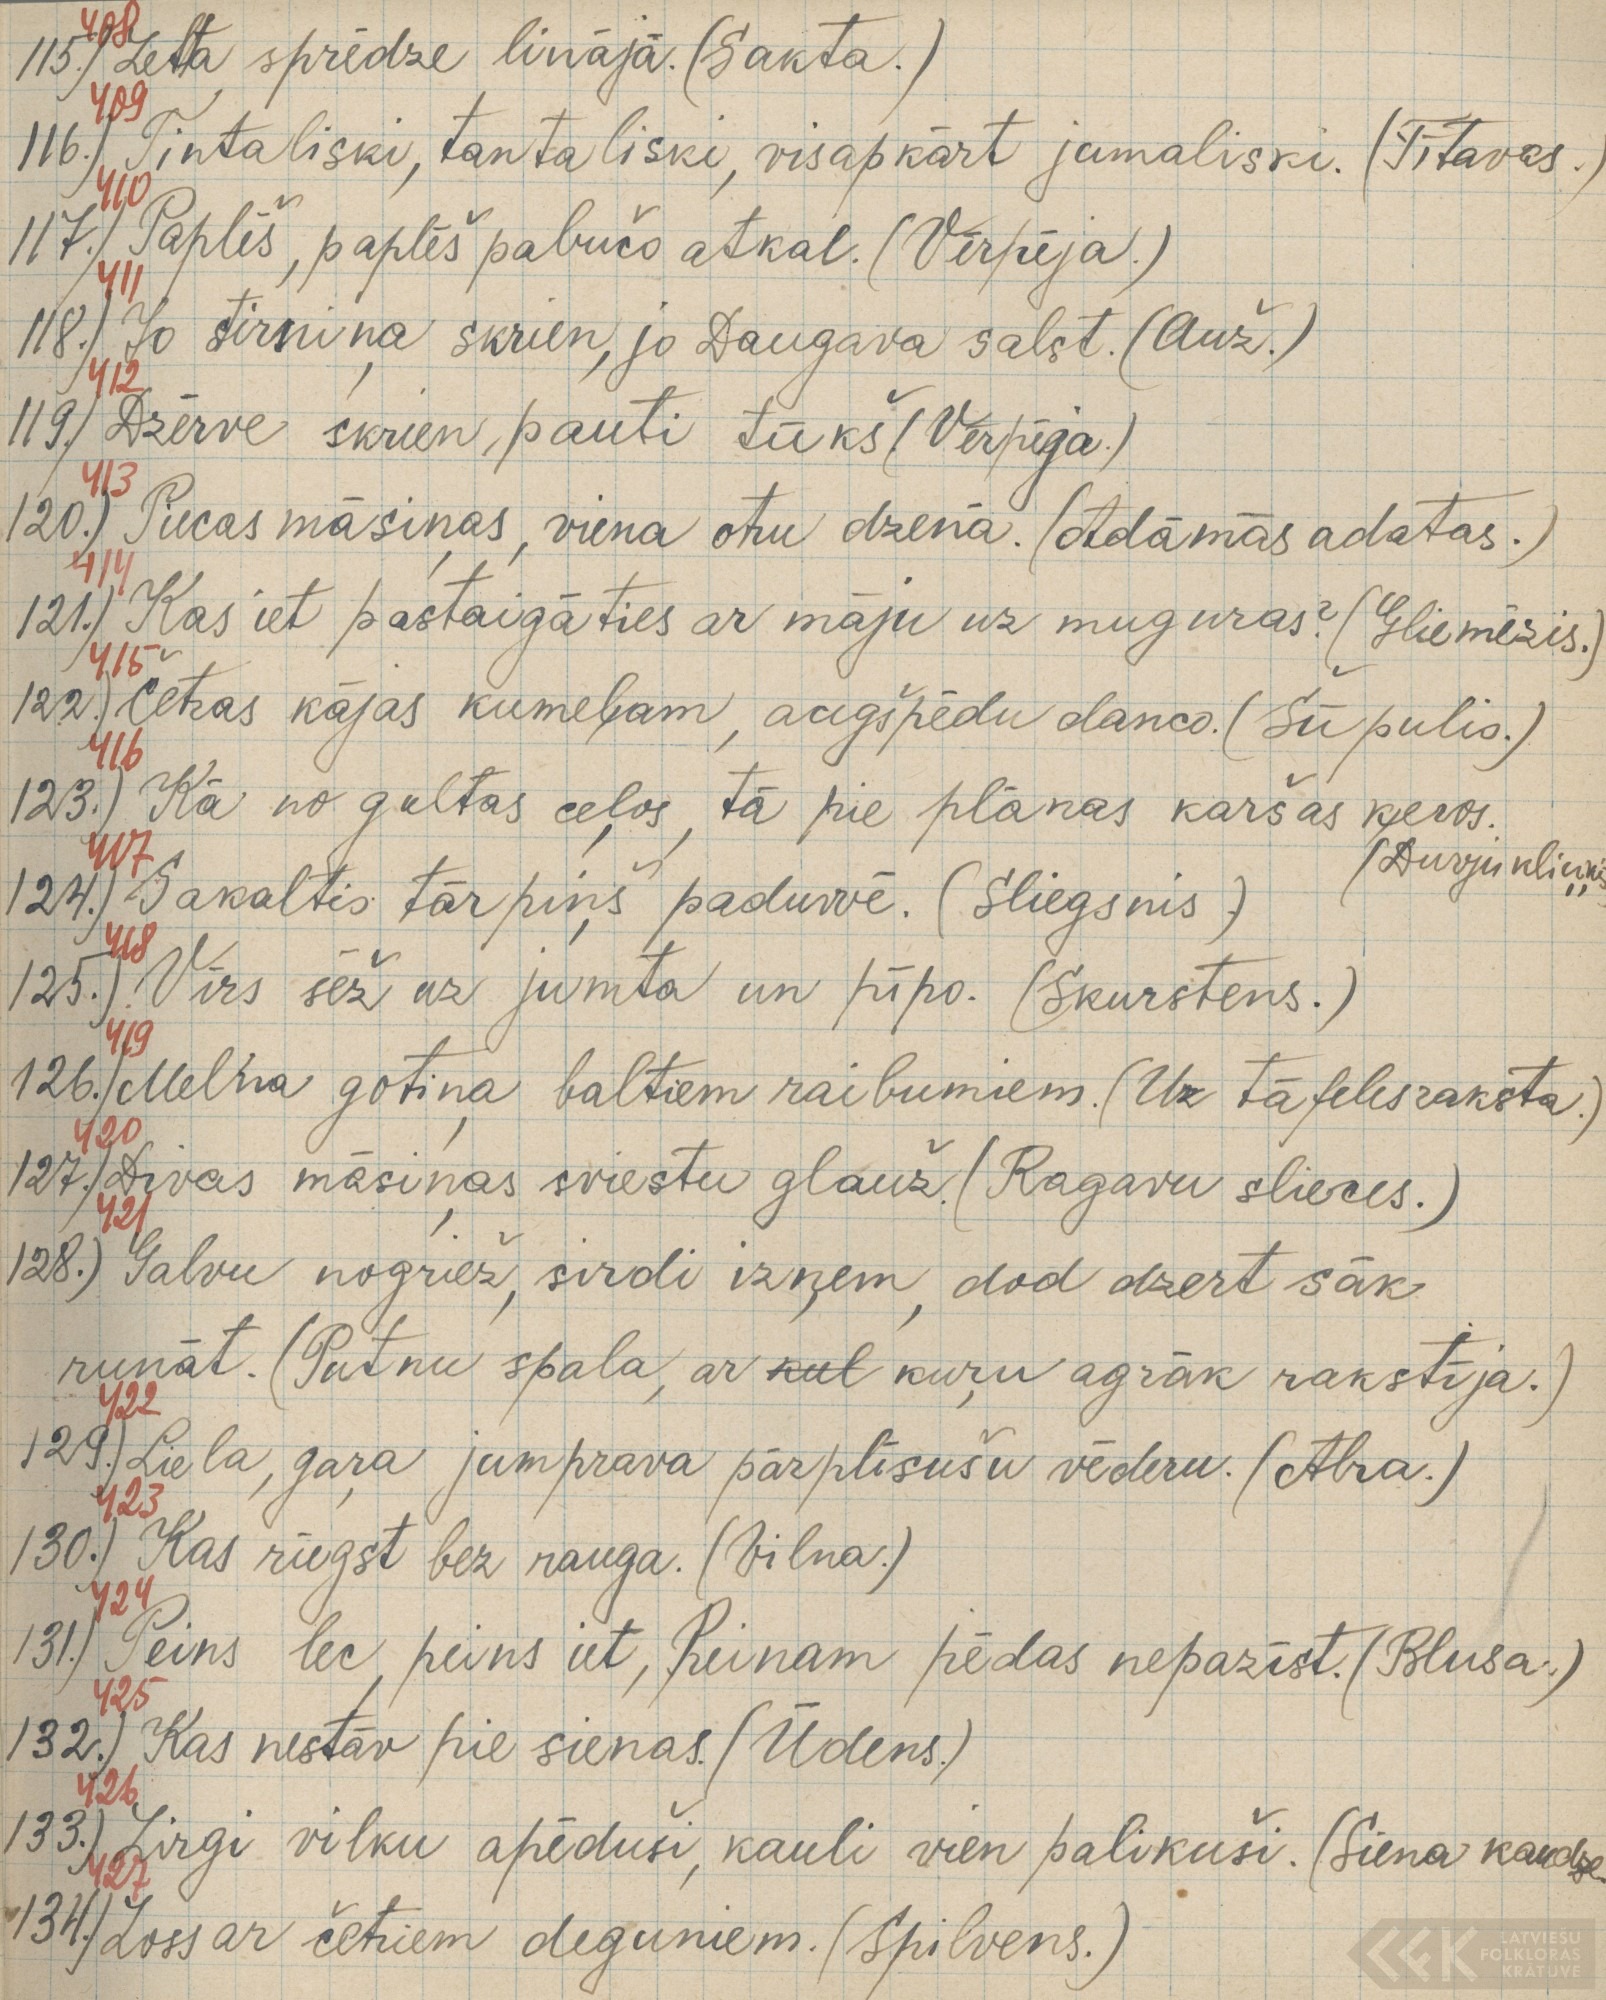 408
115.) Zelta sprēdze linājā. (Sakta.)
409
116.) Tintaliski, tantaliski, visapkārt jumaliski. (Tītavas.)
410
117.) Paplēš, paplēš pabučo atkal. (Vērpēja.)
411
118.) Jo stirniņa skrien, jo Daugava salst. (Auž.)
412
119.) Dzērve skrien, pauti tūkš (Vērpēja.)
413
120.) Piecas māsiņas, viena otru dzenā. (Adāmās adatas.)
414
121.) Kas iet pastaigāties ar māju uz muguras? (Gliemēzis.)
415
122.) Četras kājas kumeļam, augšpēdu danco. (Šūpulis.)
416
123.) Kā no gultas ceļos, tā pie plānas karšas ķeros.
(Durvju kliņķis
417
124.) Sakaltis tārpiņš padurvē. (Sliegsnis)
418
125.) Vīrs sēž uz jumta un pīpo. (Skurstens.)
419
126.) Melna gotiņa baltiem raibumiem. (Uz tāfeles raksta.)
420
127.) Divas māsiņas sviestu glauž. (Ragavu slieces.)
421
128.) Galvu nogriež, sirdi izņem, dod dzert sāk
runāt. (Putnu spala, ar kul kuŗu agrāk rakstīja.)
422
129.) Liela, gaŗa jumprava pārplīsušu vēderu. (Abra.)
423
130.) Kas rūgst bez rauga. (Vilna.)
424
131.) Peins lec, peins iet, Peinam pēdas nepazīst. (Blusa.)
425
132.) Kas nestāv pie sienas. (Ūdens.)
426
133.) Zirgi vilku apēduši, kauli vien palikuši. (Siena kaudze.
427
134.) Zoss ar četriem deguniem. (Spilvens.)
LATVIEŠU
FOLKLORAS
KRĀTUVE